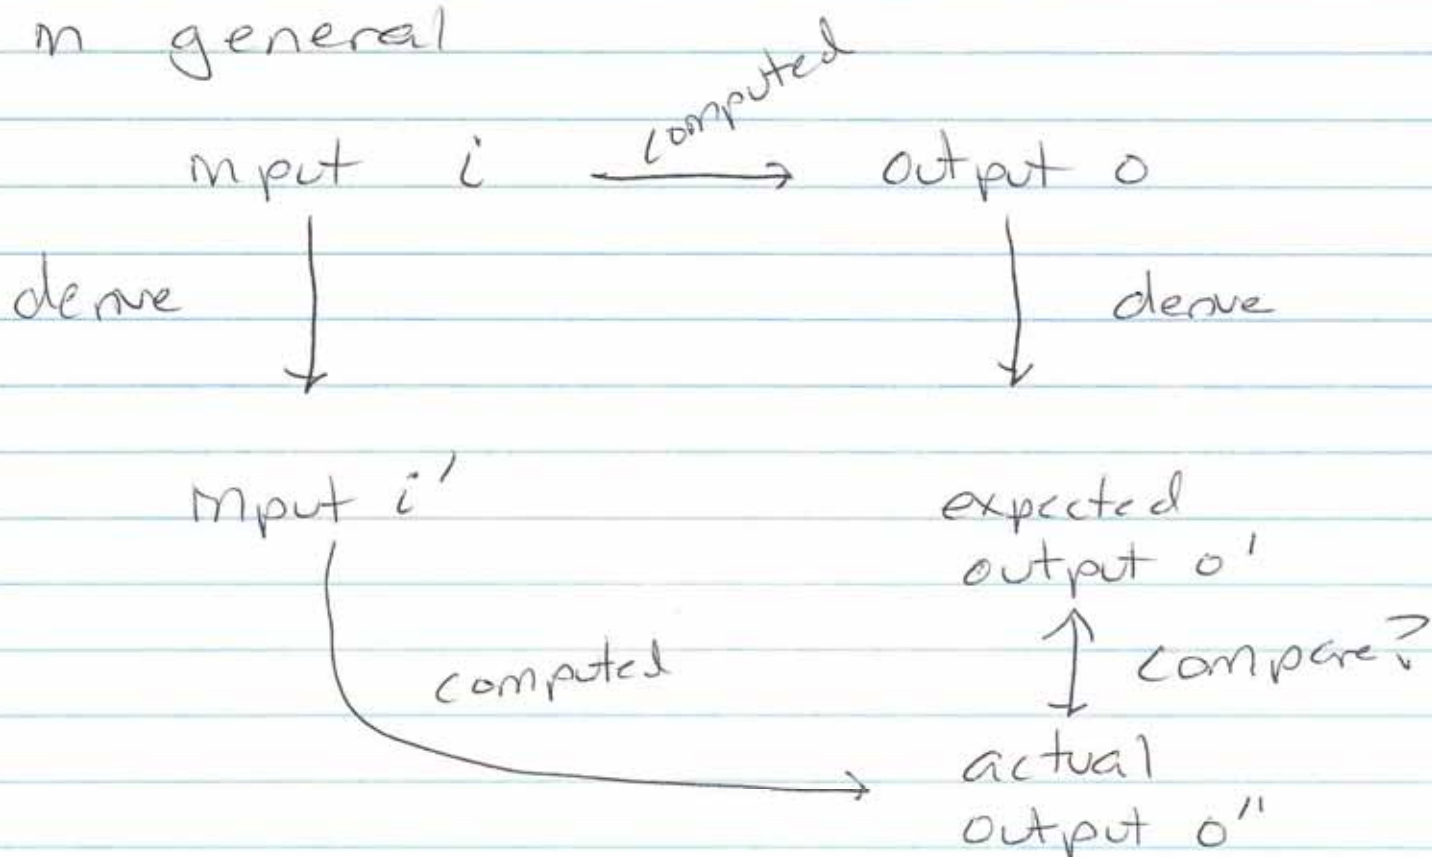 in general
computed
input i → output o
derive
derive
input i'
expected
output o'
compare?
computed
actual
output o''